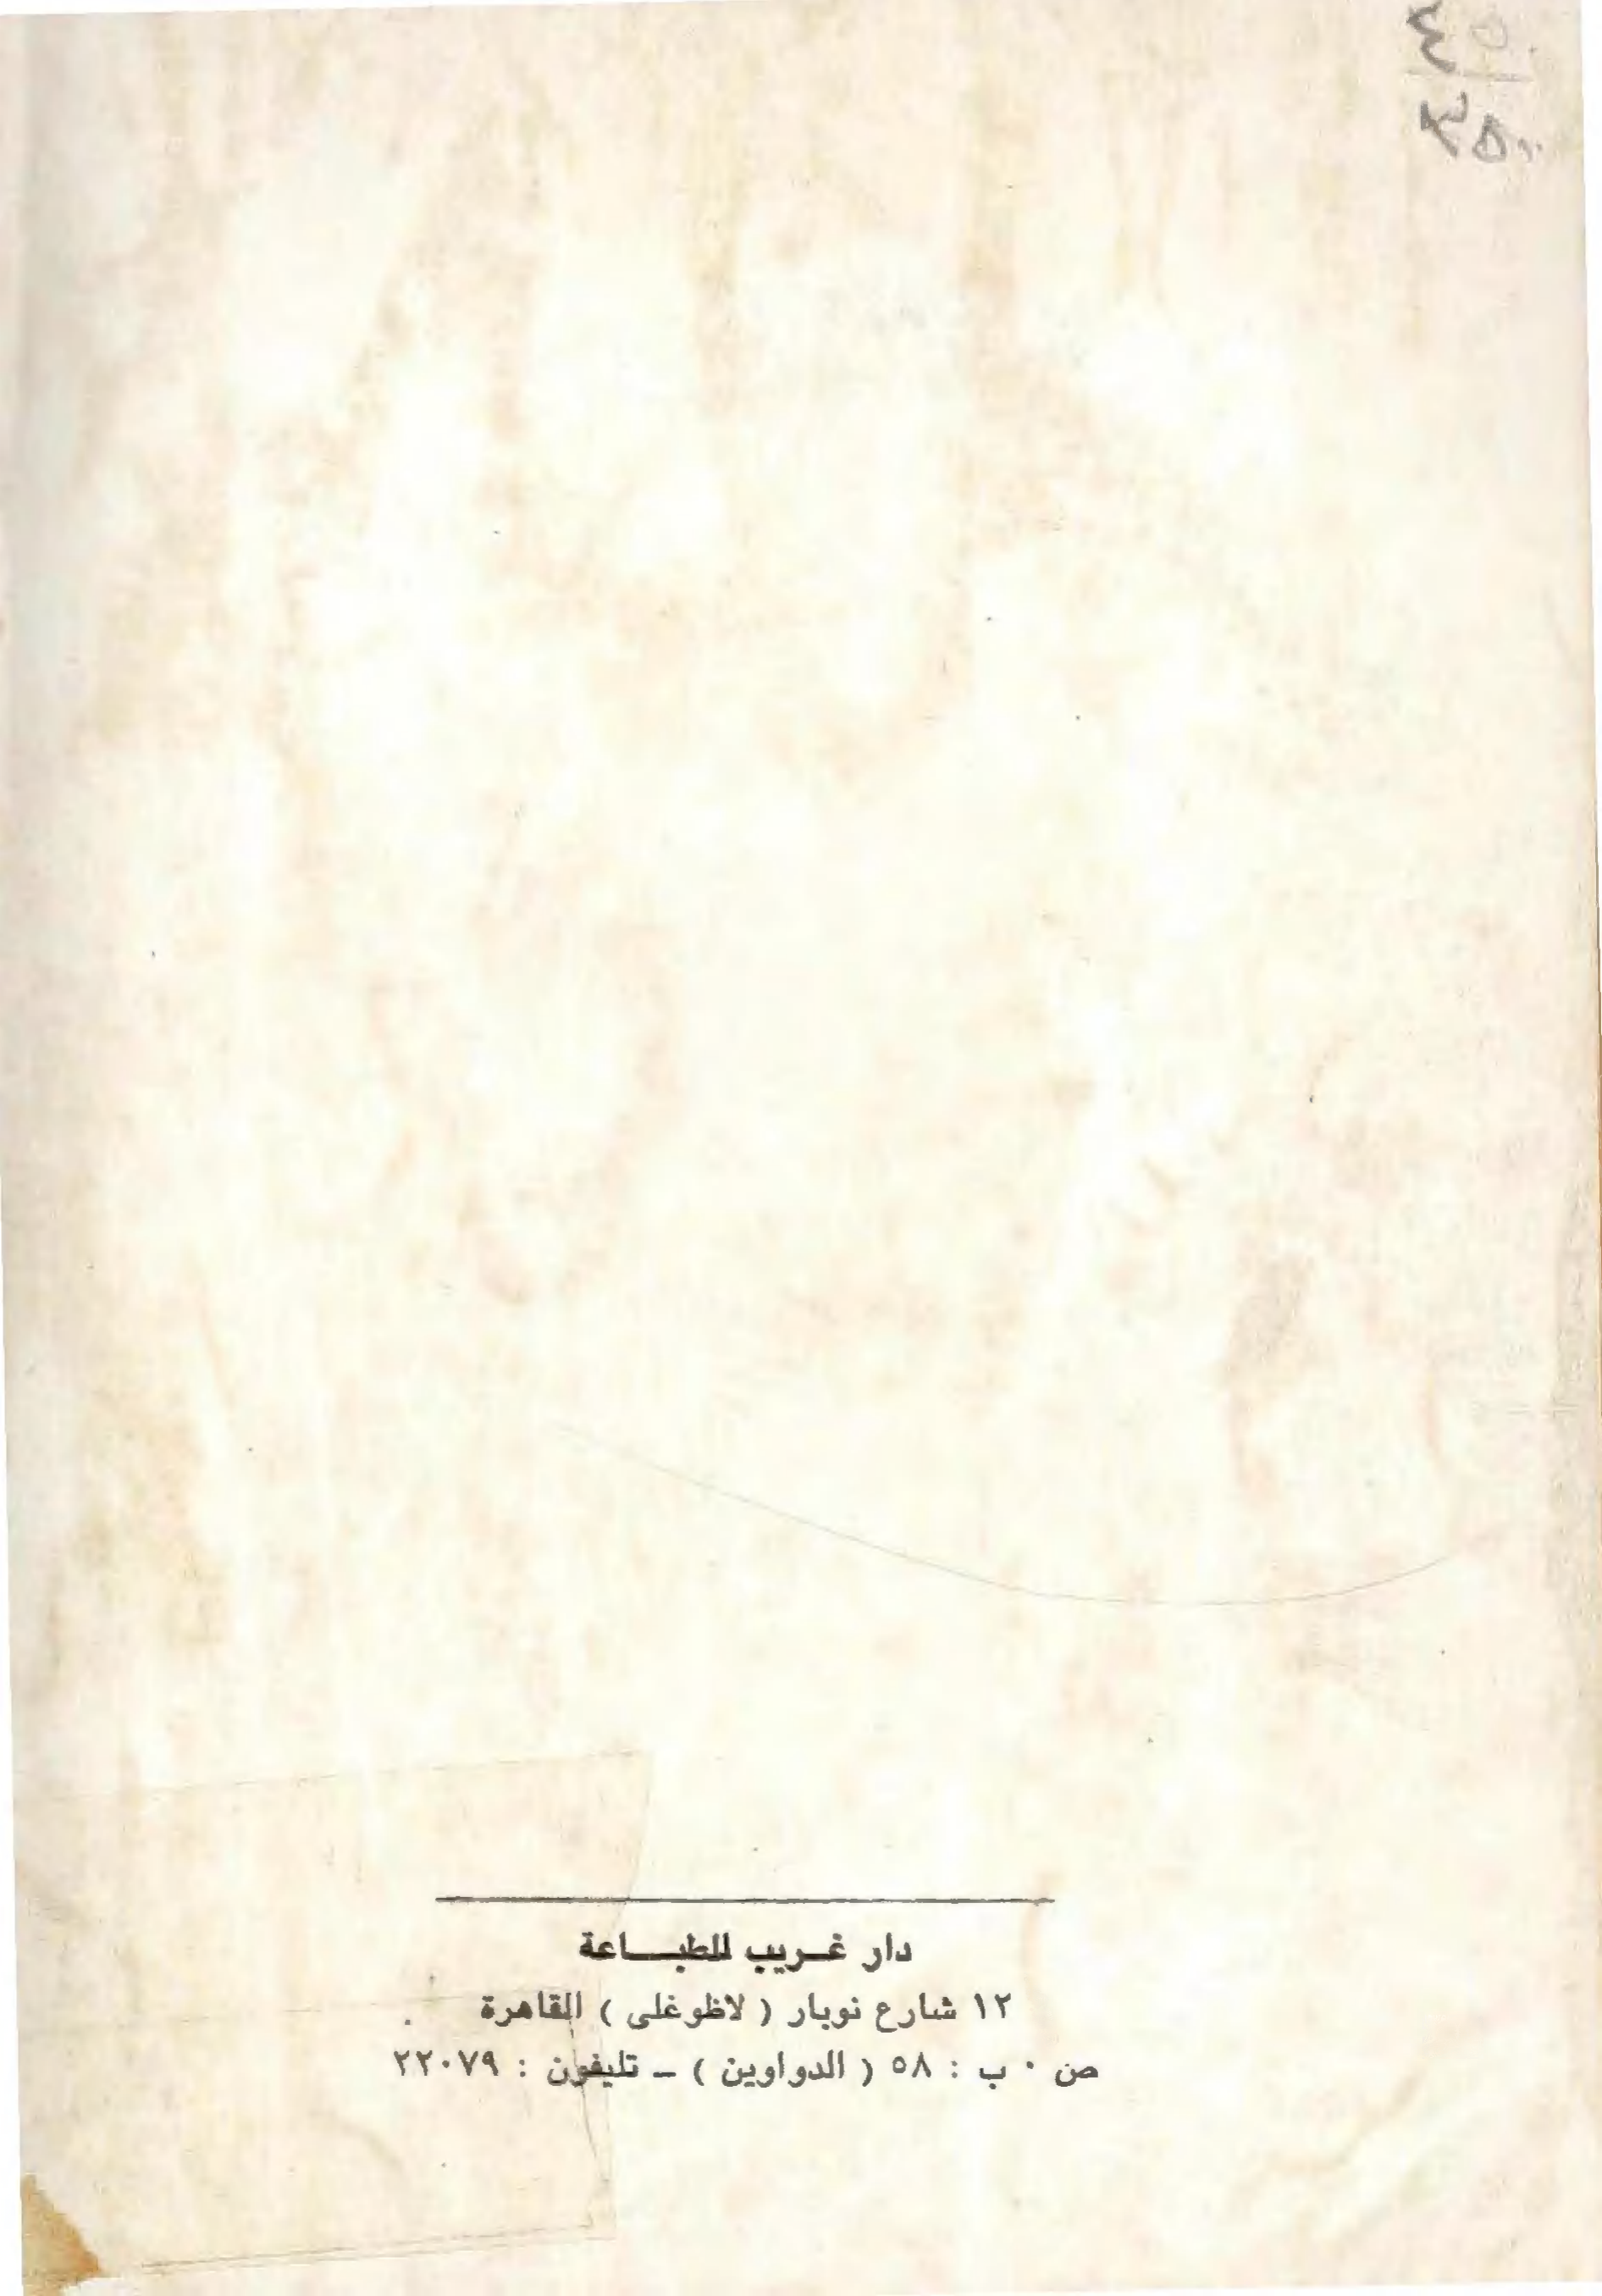 ٤٥٠
٣٥٠
دار غريب للطباعة
١٢ شارع نوبار ( لاظوغلى ) القاهرة
ص ٠ ب : ٥٨ ( الدواوين ) – تليفون : ٢٢٠٧٩